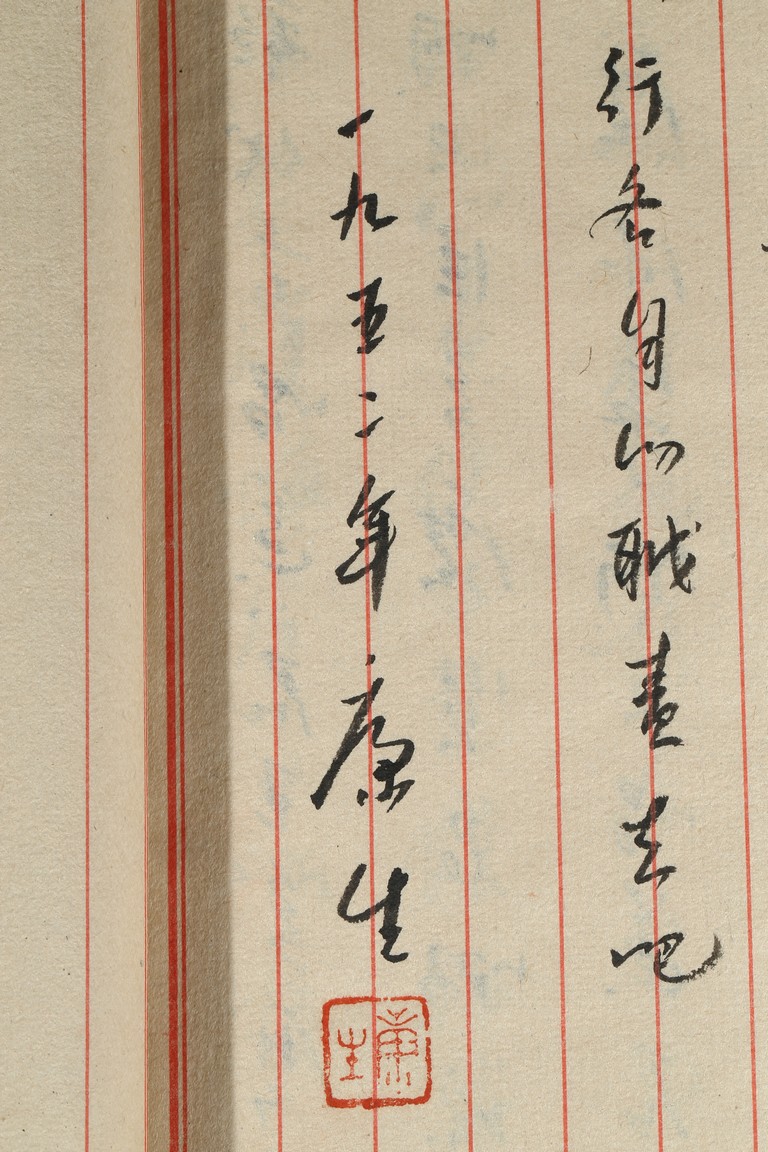 行各自的职责去吧
一九五二年康生
康生